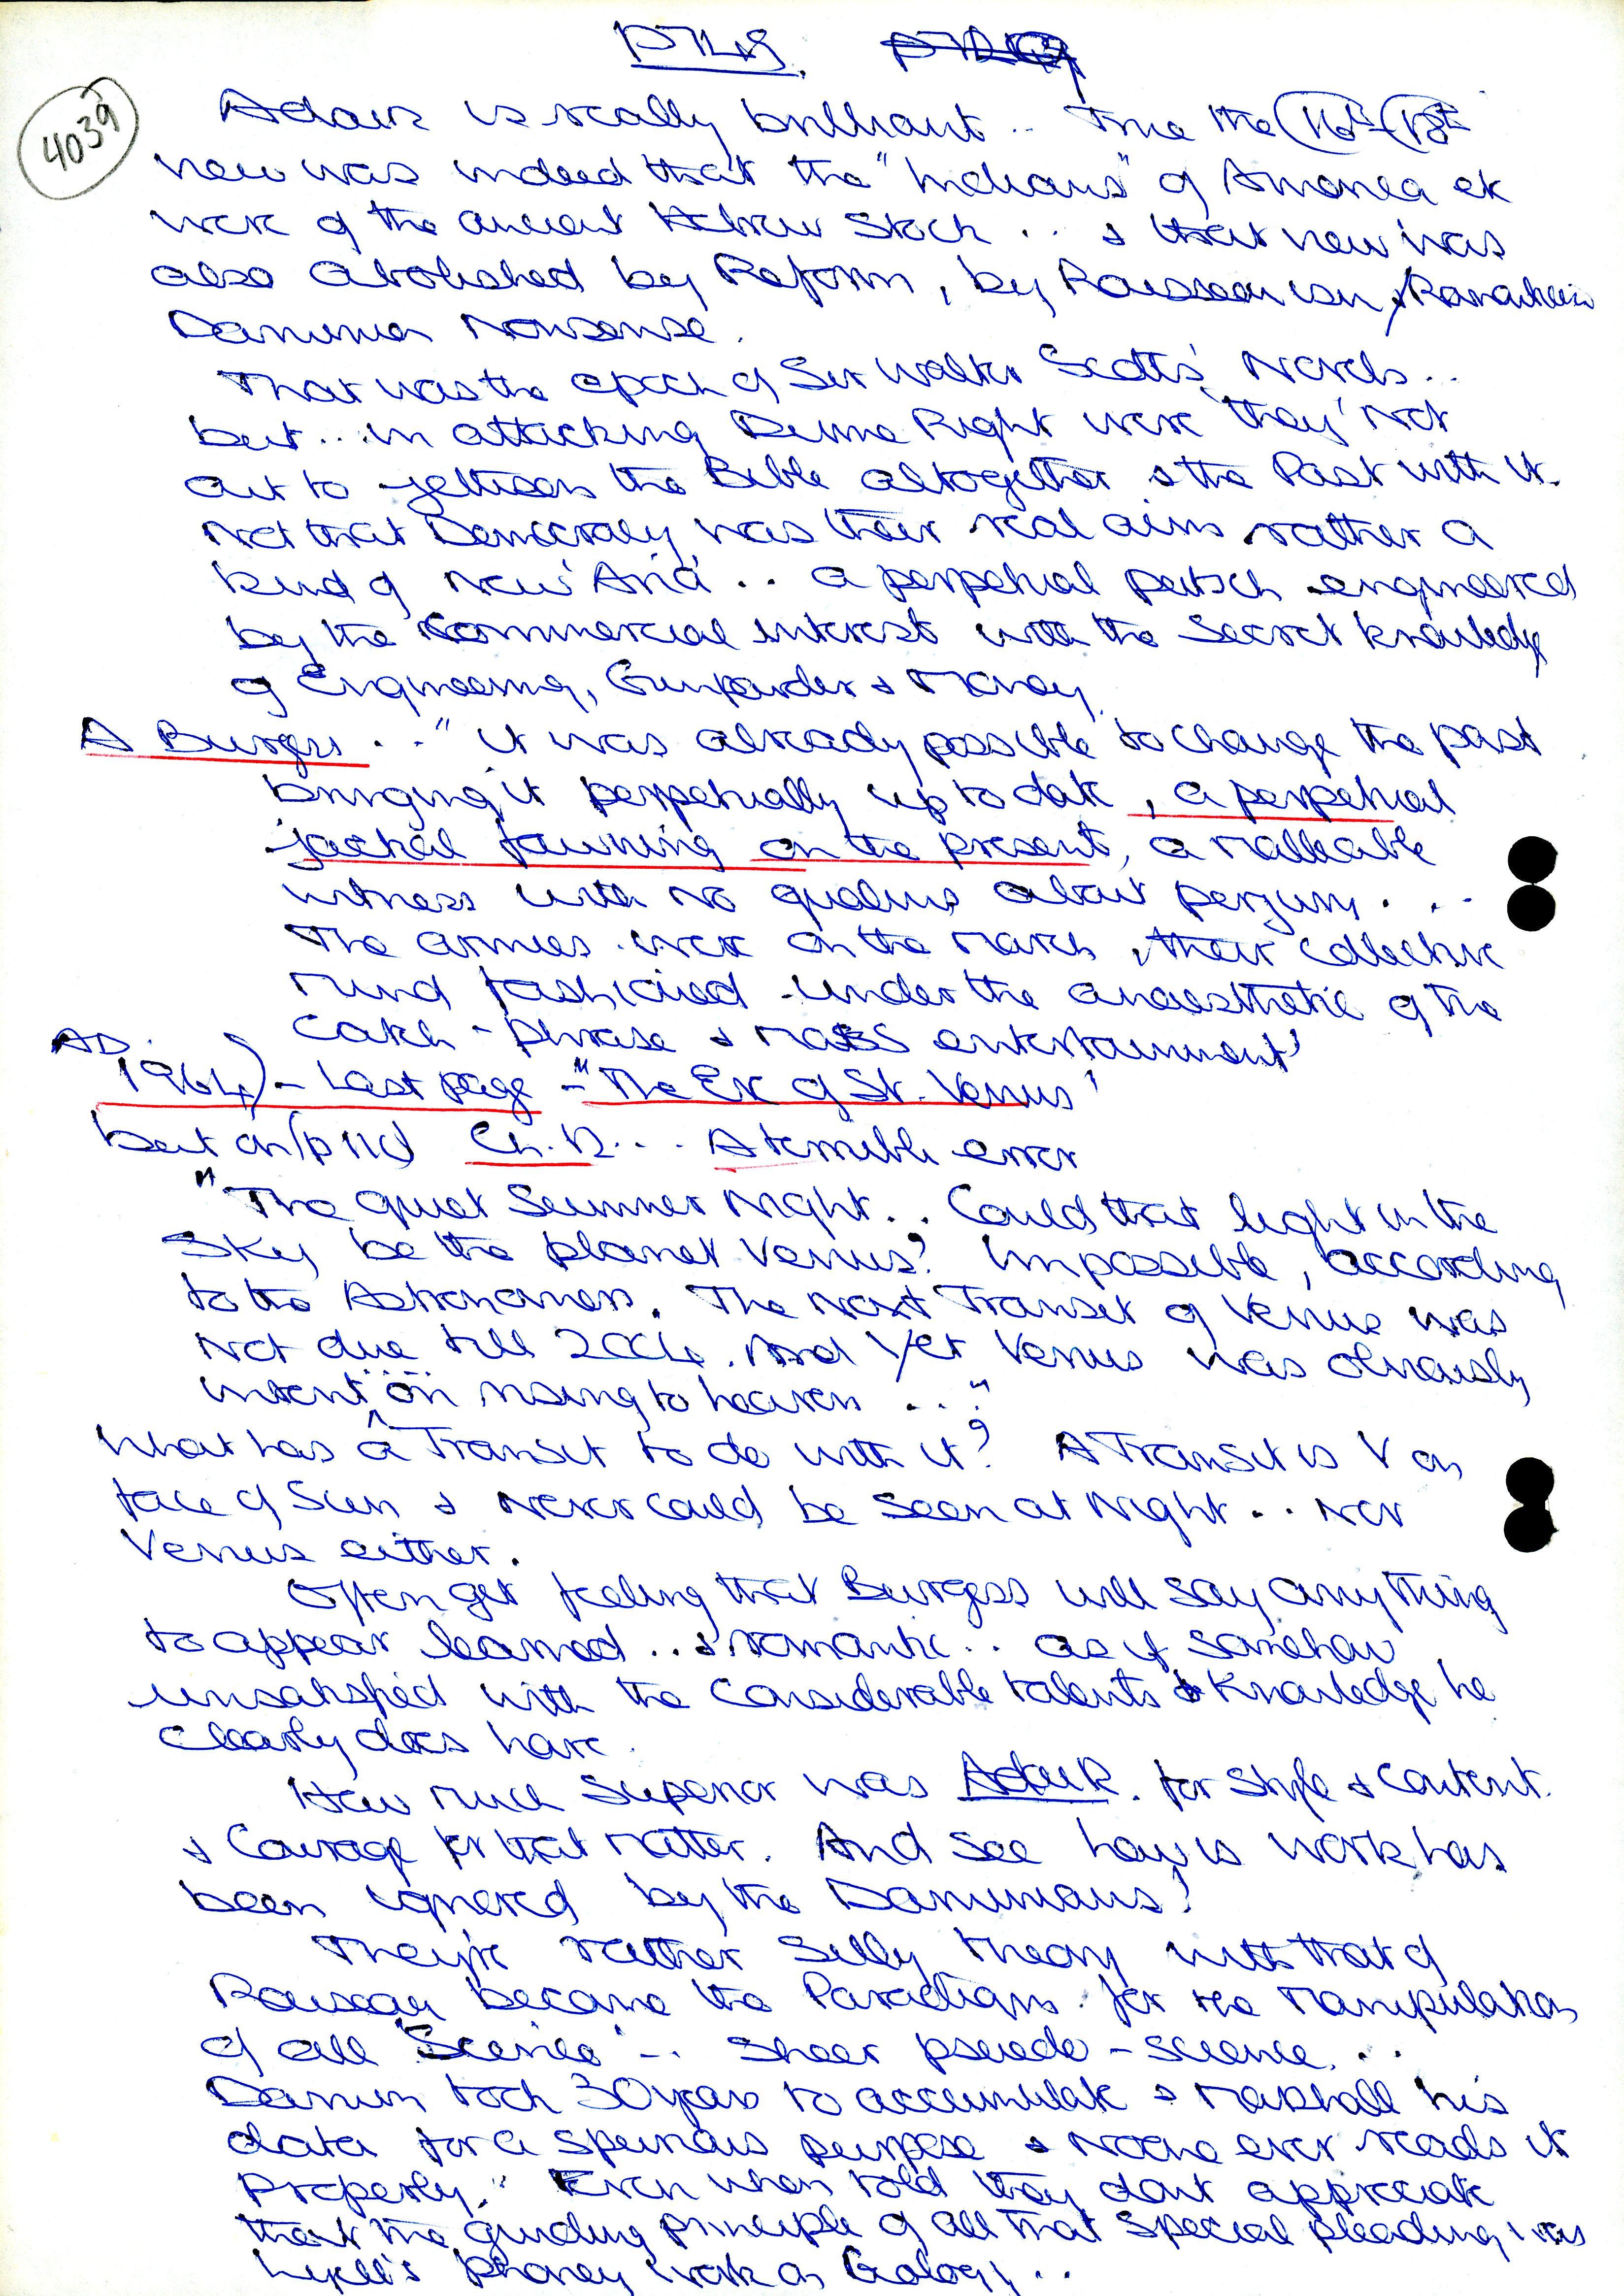 4039
Adair is really brilliant .. True the (16th-(18th
view was indeed that the "Indians" of America etc
were of the ancient Hebrew Stock . . & that view was
also abolished by Reform, by Rousseau
Darwinian Nonsense.
That was the epoch of Sir Walter Scott's Novels ..
but . . in attacking Divine Right were 'they' not
out to jettison the Bible altogether & the Past with it.
Not that Democracy was their real aim rather a
kind of New 'Aria' .. a perpetual putsch engineered
by the Commercial interest with the Secret knowledge
of Engineering, Gunpowder & Money.
A Burgess . . " it was already possible to change the past
bringing it perpetually up to date, a perpetual
jackal fawning on the present, a malleable
witness with no qualms about perjury. . .
The armies were on the march, their collective
mind fashioned under the anaesthetic of the
catch-phrase & mass entertainment'
AD.
1964) - Last page - "The Eve of St. Venus'
but on (p 118) Ch. 12 . . . A terrible error
"The quiet Summer Night . . Could that light in the
Sky be the planet Venus? Impossible, according
to the Astronomers. The next Transit of Venus was
not due till 2004. And Yet Venus was obviously
intent on rising to heaven . . ."
What has a Transit to do with it? A Transit is V on
face of Sun & never could be seen at Night . . Nor
Venus either.
Often get feeling that Burgess will say anything
to appear learned .. & romantic .. as if somehow
unsatisfied with the considerable talents & Knowledge he
clearly does have.
How much Superior was Adair. for Style & Content.
& Courage for that matter. And see how is work has
been ignored by the Darwinians!
They're rather Silly theory with that of
Rousseau became the Paradigm for the manipulation
of all 'Science' - . Sheer pseudo-science. . .
Darwin took 30 years to accumulate & marshall his
data for a spurious purpose & no one ever reads it
properly. Even when told they dont appreciate
that the guiding principle of all that special pleading was
Lyell's phoney work on Geology . .